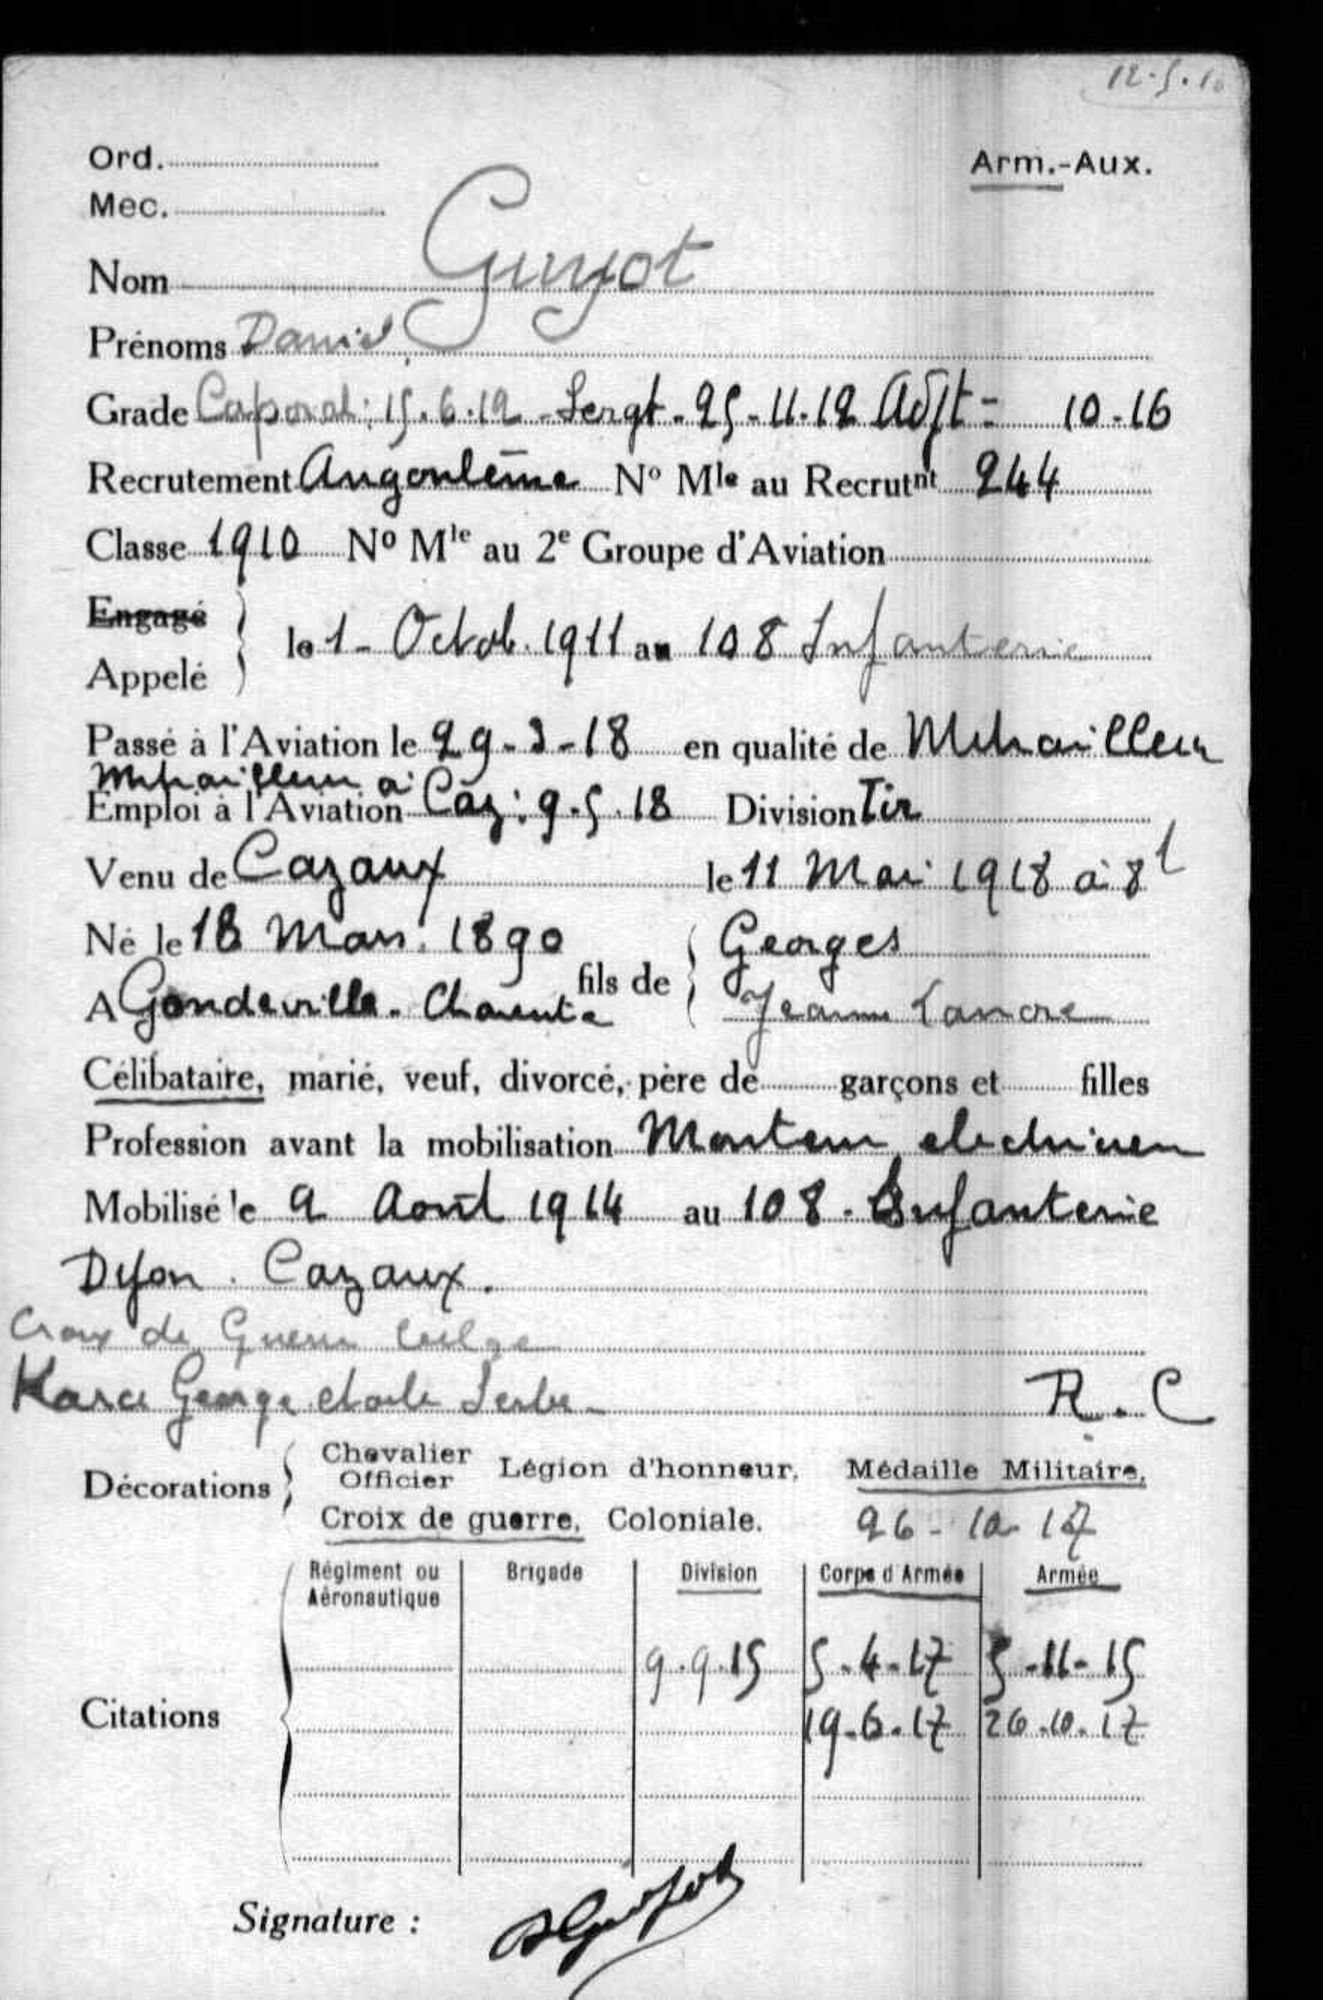 12-5-18
Ord.
Arm.-Aux.
Mec.
Nom Guyot
Prénoms Daniel
Grade Caporal: 15.6.12 - Sergt - 25-11-12 Adjt = 10-16
Recrutement Angoulême N° Mle au Recrutnt 244
Classe 1910 N° Mle au 2e Groupe d'Aviation
Engagé
Appelé
le 1 - Octob. 1911 au 108 Infanterie
Passé à l'Aviation le 29-3-18 en qualité de Mitrailleur
Mitrailleur à
Emploi à l'Aviation Caz: 9.5.18 Division Tir
Venu de Cazaux le 11 Mai 1918 à 8h
Né le 18 Mars 1890
fils de Georges
A Gondeville. Charente
Jeanne
Célibataire, marié, veuf, divorcé, père de garçons et filles
Profession avant la mobilisation Monteur electricien
Mobilisé le 2 Août 1914 au 108 - Infanterie
Dijon. Cazaux.
Croix de Guerre belge
Kara George etoile Serbe -
R. C
Décorations
Chevalier
Officier
Légion d'honneur, Médaille Militaire,
Croix de guerre, Coloniale. 26-10-17
Régiment ou Aéronautique Brigade Division Corps d'Armée Armée
9.9.15 5-4-17 5-11-15
Citations
19-6-17 26.10.17
Signature : DGuyot